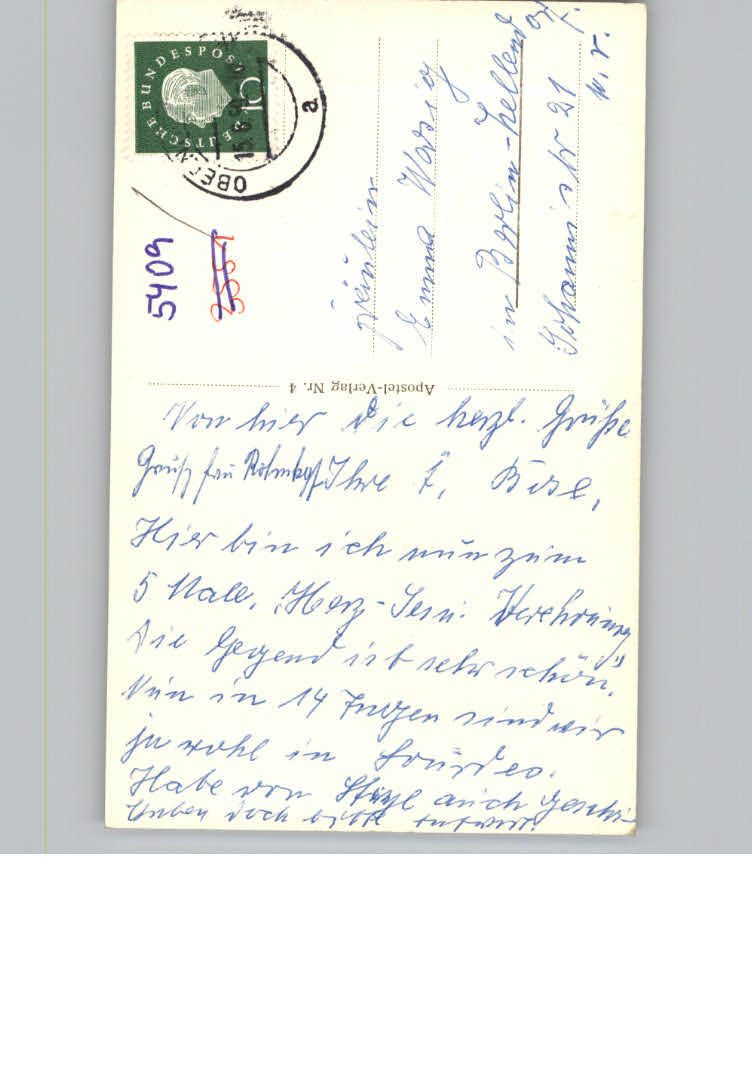 DEUTSCHE BUNDESPOST
10
15.6.
a
5409
Fräulein
Emma
in Berlin-Zellendorf
Johannisstr 21
Apostel-Verlag Nr. 4
Von hier die herzl. Grüße
Gruß frau Ihre
Hier bin ich nun zum
5 Male. "Herz-Jesu. Verehrung"
Die Gegend ist sehr schön.
Nun in 14 Tagen sind wir
ja wohl in Lourdes.
Habe von auch geschrieben
doch bitte